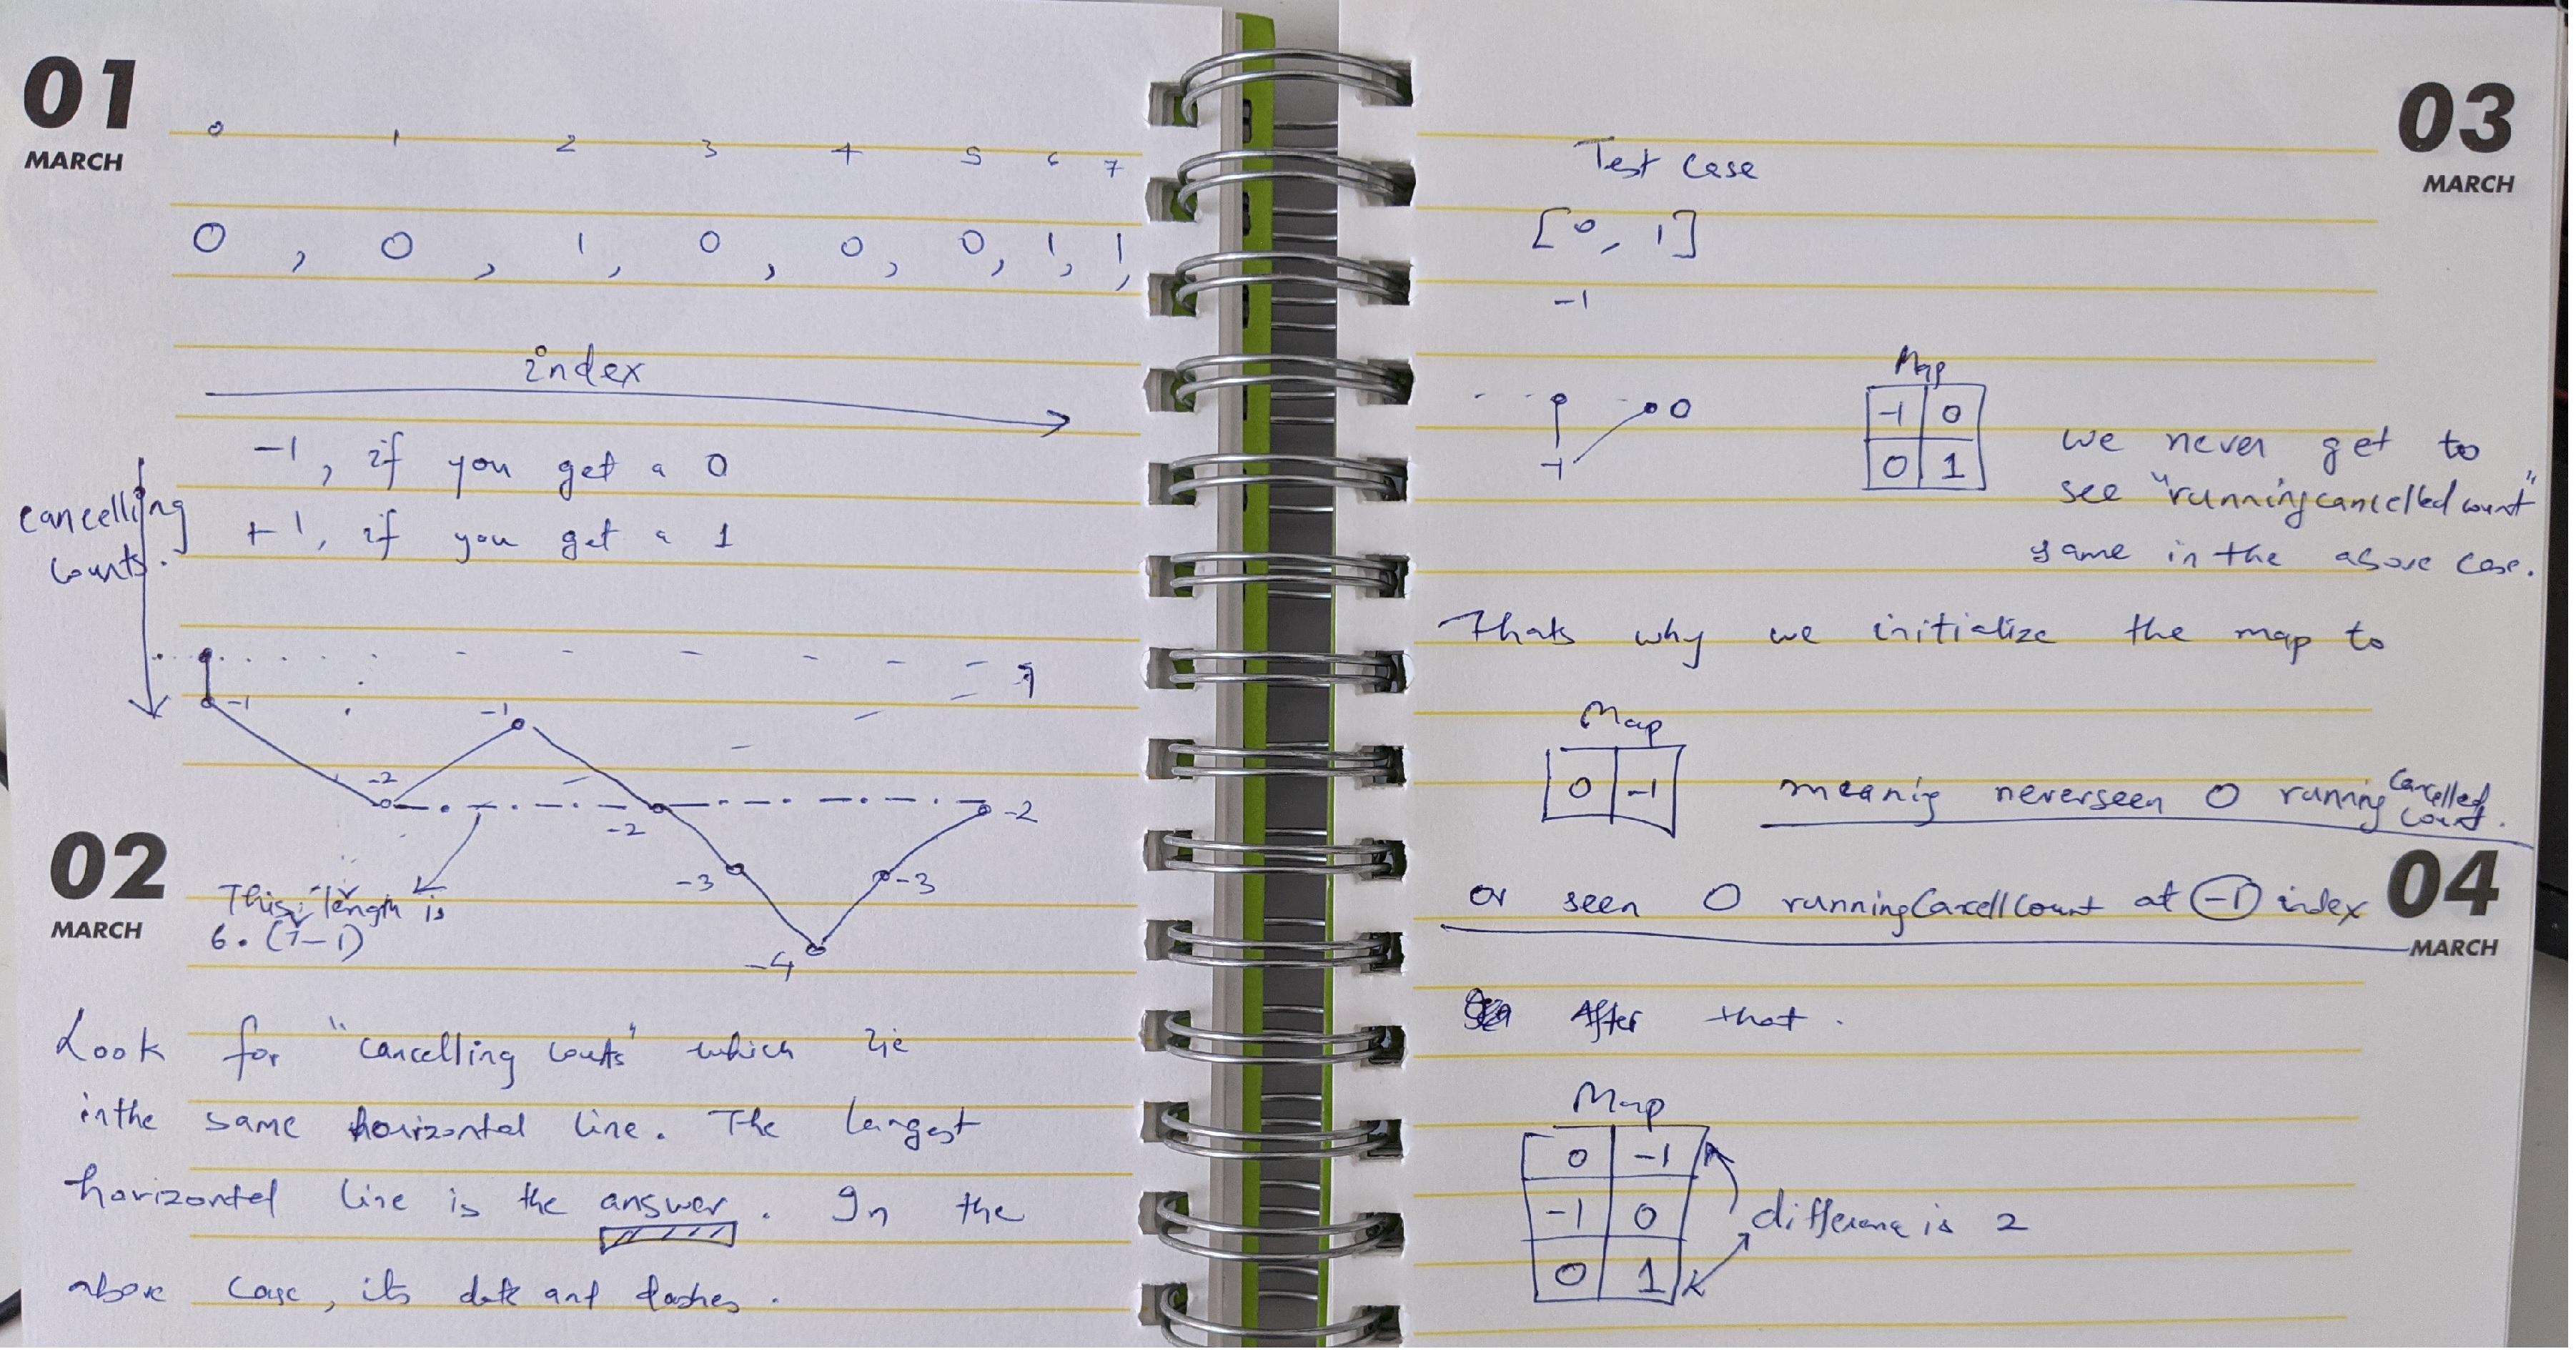 01
MARCH
0 1 2 3 4 5 6 7
0 , 0 , 1 , 0 , 0 , 0 , 1 , 1 ,
index
-1, if you get a 0
cancelling
counts.
+1, if you get a 1
-1
-1
-2
-2
-2
-3
-3
-4
02
MARCH
This length is
6. (7-1)
Look for "cancelling couts" which lie
in the same horizontal line. The largest
horizontal line is the answer. In the
above case, its dots and dashes.
03
MARCH
Test Case
[0, 1]
-1
0
-1
Map
-1 0
0 1
we never get to
see "runningcancelled count"
same in the above case.
Thats why we initialize the map to
Map
0 -1
meanig neverseen 0 running cancelled
count.
or seen 0 runningCancellCount at -1 index
04
MARCH
After that .
Map
0 -1
-1 0
0 1
difference is 2